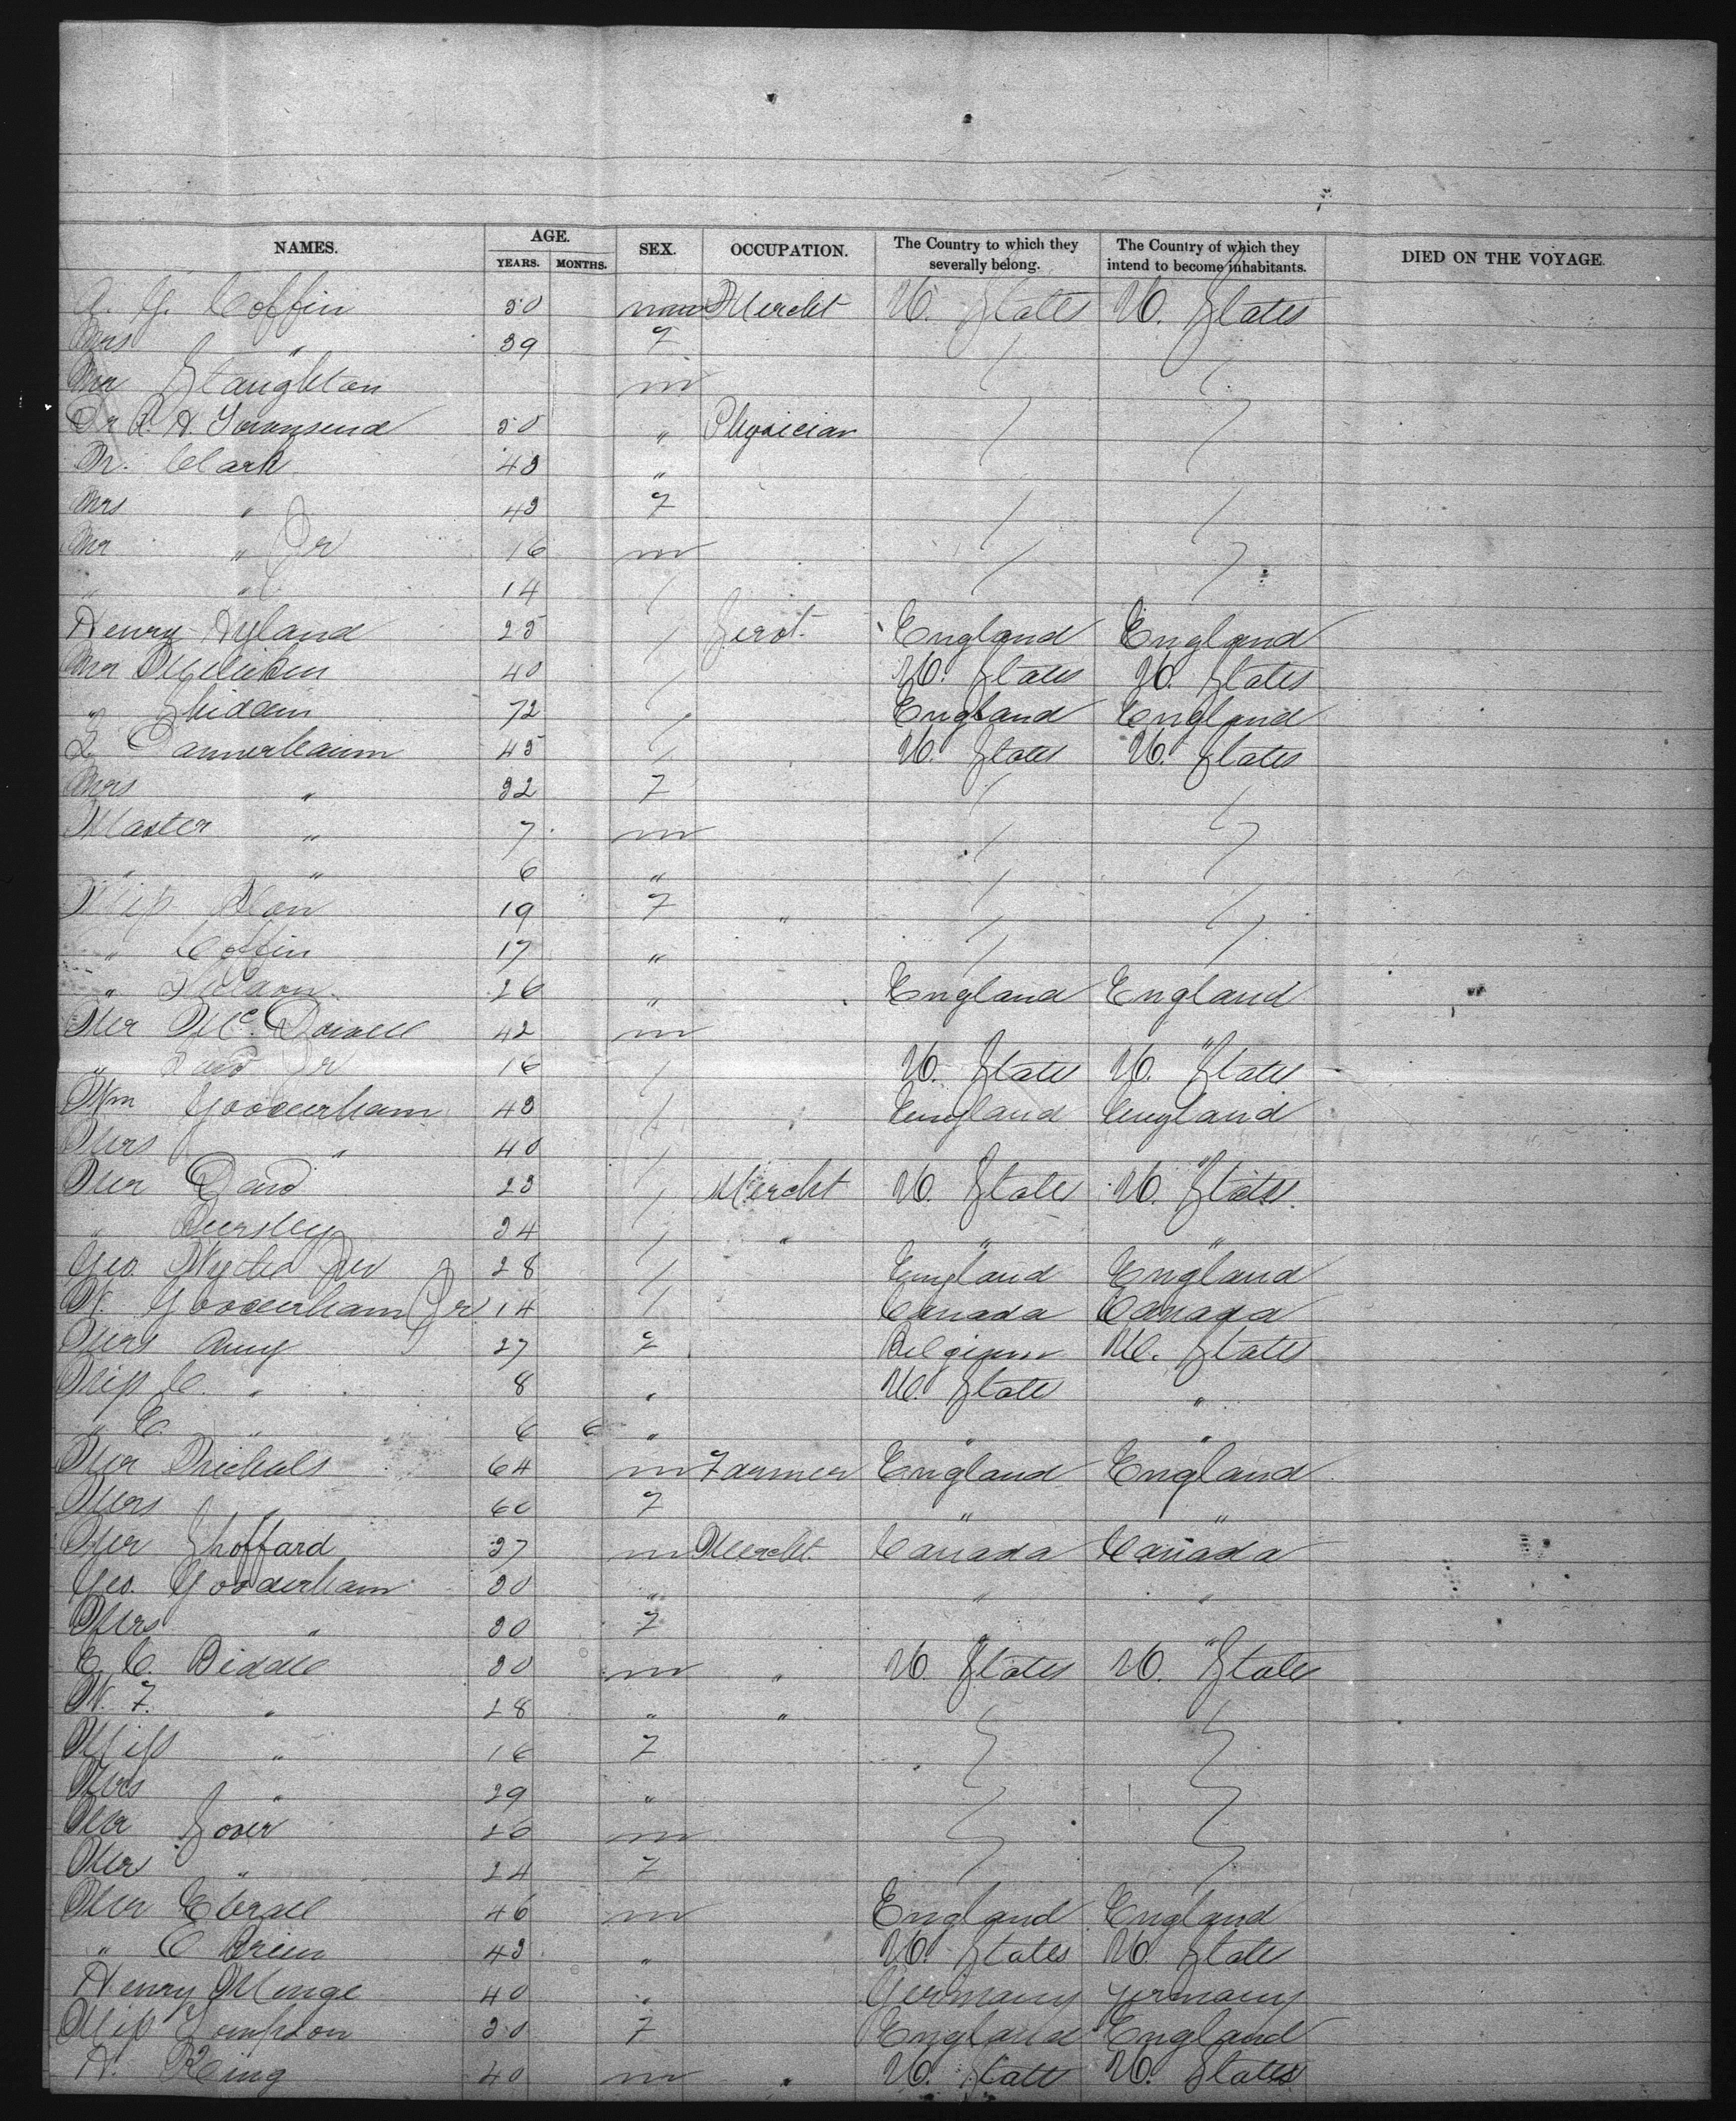 NAMES. AGE. YEARS. MONTHS. SEX. OCCUPATION. The Country to which they severally belong. The Country of which they intend to become inhabitants. DIED ON THE VOYAGE.
A. G. Coffin 50 m Mercht U. States U. States
Mrs " 39 F
Mr Staughton m
Dr R. H. Townsend 50 " Physician
Dr. Clark 43 "
Mrs " 43 F
Mr " Jr 16 m
" " 14
Henry Hyland 25 Servt. England England
Mr Milliken 40 U. States U. States
" 72 England England
L Dannerbaum 45 U. States U. States
Mrs " 32 F
Master " 7 m
" " 6 "
Miss 19 F "
" Coffin 17 "
" 26 " England England
Mr McDowell 42 m "
" Jr 16 U. States U. States
Wm Gooderham 43 England England
Mrs " 40 "
Mr 23 Mercht U. States U. States
" 34 " " "
Geo. 28 England England
W. Gooderham Jr 14 Canada Canada
Mrs Amy 27 F Belgium U. States
Miss C. " 8 " U. State "
" E. " 6 6 " " "
Mr Nichols 64 m Farmer England England
Mrs " 60 F " "
Mr Shoffard 37 m Mercht. Canada Canada
Geo. Gooderham 30 " " "
Mrs " 30 F " "
E. C. Biddle 30 m " U. States U. States
W. F. " 28 " "
Miss " 16 F
Mrs " 29 "
Mr 26 m
Mrs " 24 F
Mr Ebrall 46 m England England
" O Brien 43 " U. States U. State
Henry Minge 40 " Germany Germany
Miss 30 F England England
H. King 40 m " U. State U. States